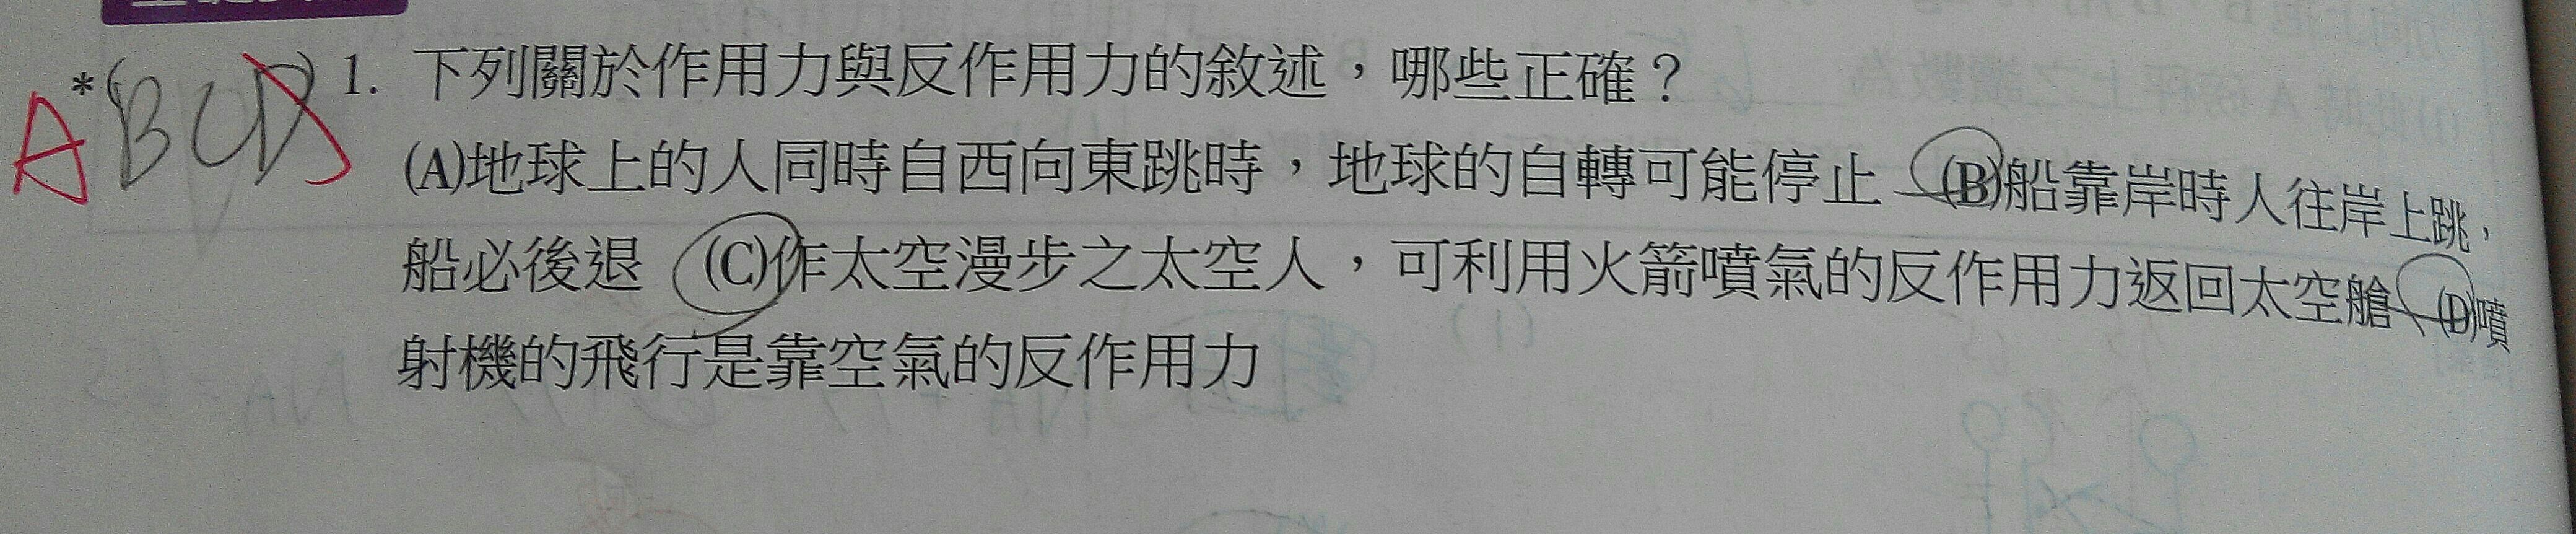 A *(BCD) 1. 下列關於作用力與反作用力的敘述，哪些正確？
(A)地球上的人同時自西向東跳時，地球的自轉可能停止 (B)船靠岸時人往岸上跳，
船必後退 (C)作太空漫步之太空人，可利用火箭噴氣的反作用力返回太空艙 (D)噴
射機的飛行是靠空氣的反作用力